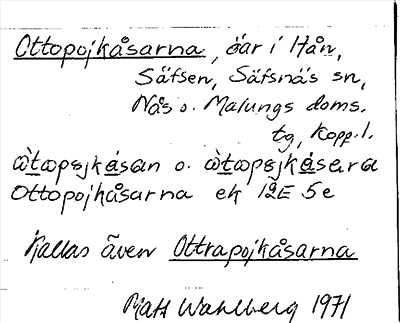 Ottopojkåsarna, öar i Hån,
Säfsen, Säfsnäs sn,
Nås o. Malungs doms.
tg, Kopp. l.
ὼtωpɞjkásan o. ὼtωpɞjkåsara
Ottopojkåsarna ek 12E 5e
Kallas även Ottrapojkåsarna
Mats Wahlberg 1971